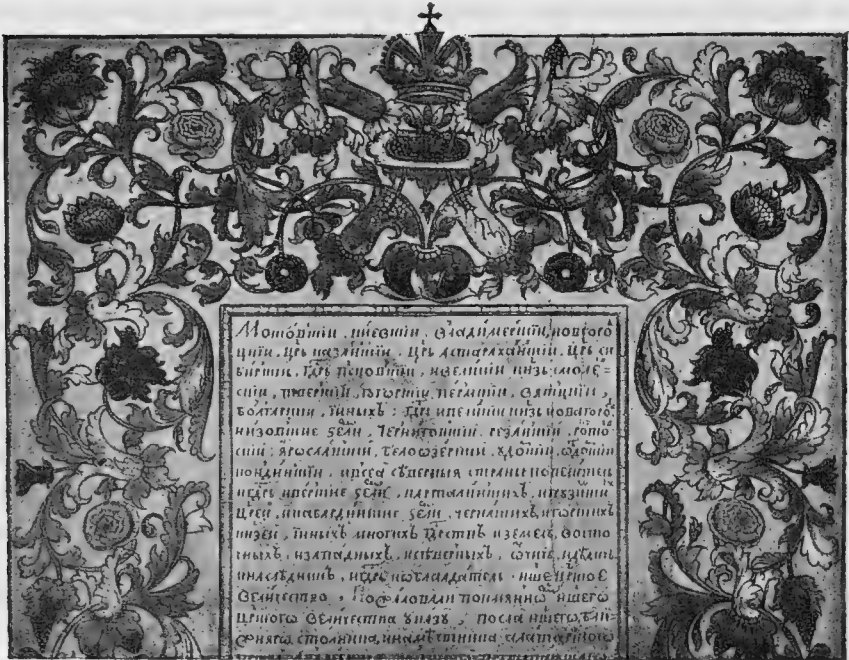 Московскїи, кїевскїи, владимерскїи, новгоро
цкїи, Црь казанскїи, Црь астараханскїи, Црь си
бирскїи, Гдрь псковскїи, ивеликїи кнзь смоле=
скїи, тверскїи, югорскїи, пермскїи, вятцкїи,
болгарскїи, їиныхъ: Гдрь ивеликїи кнзь новагоро
низовские земли, черниговскїи, резанскїи, росто
скїи, ярославскїи, белоозерскїи, удорскїи, обдорскїи
кондинскїи, ивсеа северныя страны повелитель
игдрь иверские земли, карталинскихъ, игрузински
црей, икабардинские земли, черкаскихъ, игорскихъ
кнзей, їиныхъ многихъ гдрствъ иземель, восто
ныхъ, изападныхъ, исеверныхъ, отчичь, идедичь
инаследникъ, игдрь иобладатель. нше црское
величество, Пожаловали
црского величества указу, посла ншего, бли
столника, инаместника